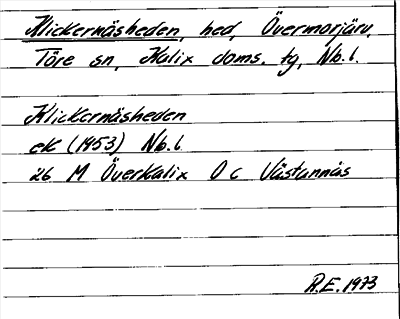 Klickernäsheden, hed, Övermorjärv,
Töre sn, Kalix doms. tg, Nb. l.
Klickernäsheden
ek (1953) Nb. l
26 M Överkalix 0 c Västannäs
R.E. 1973